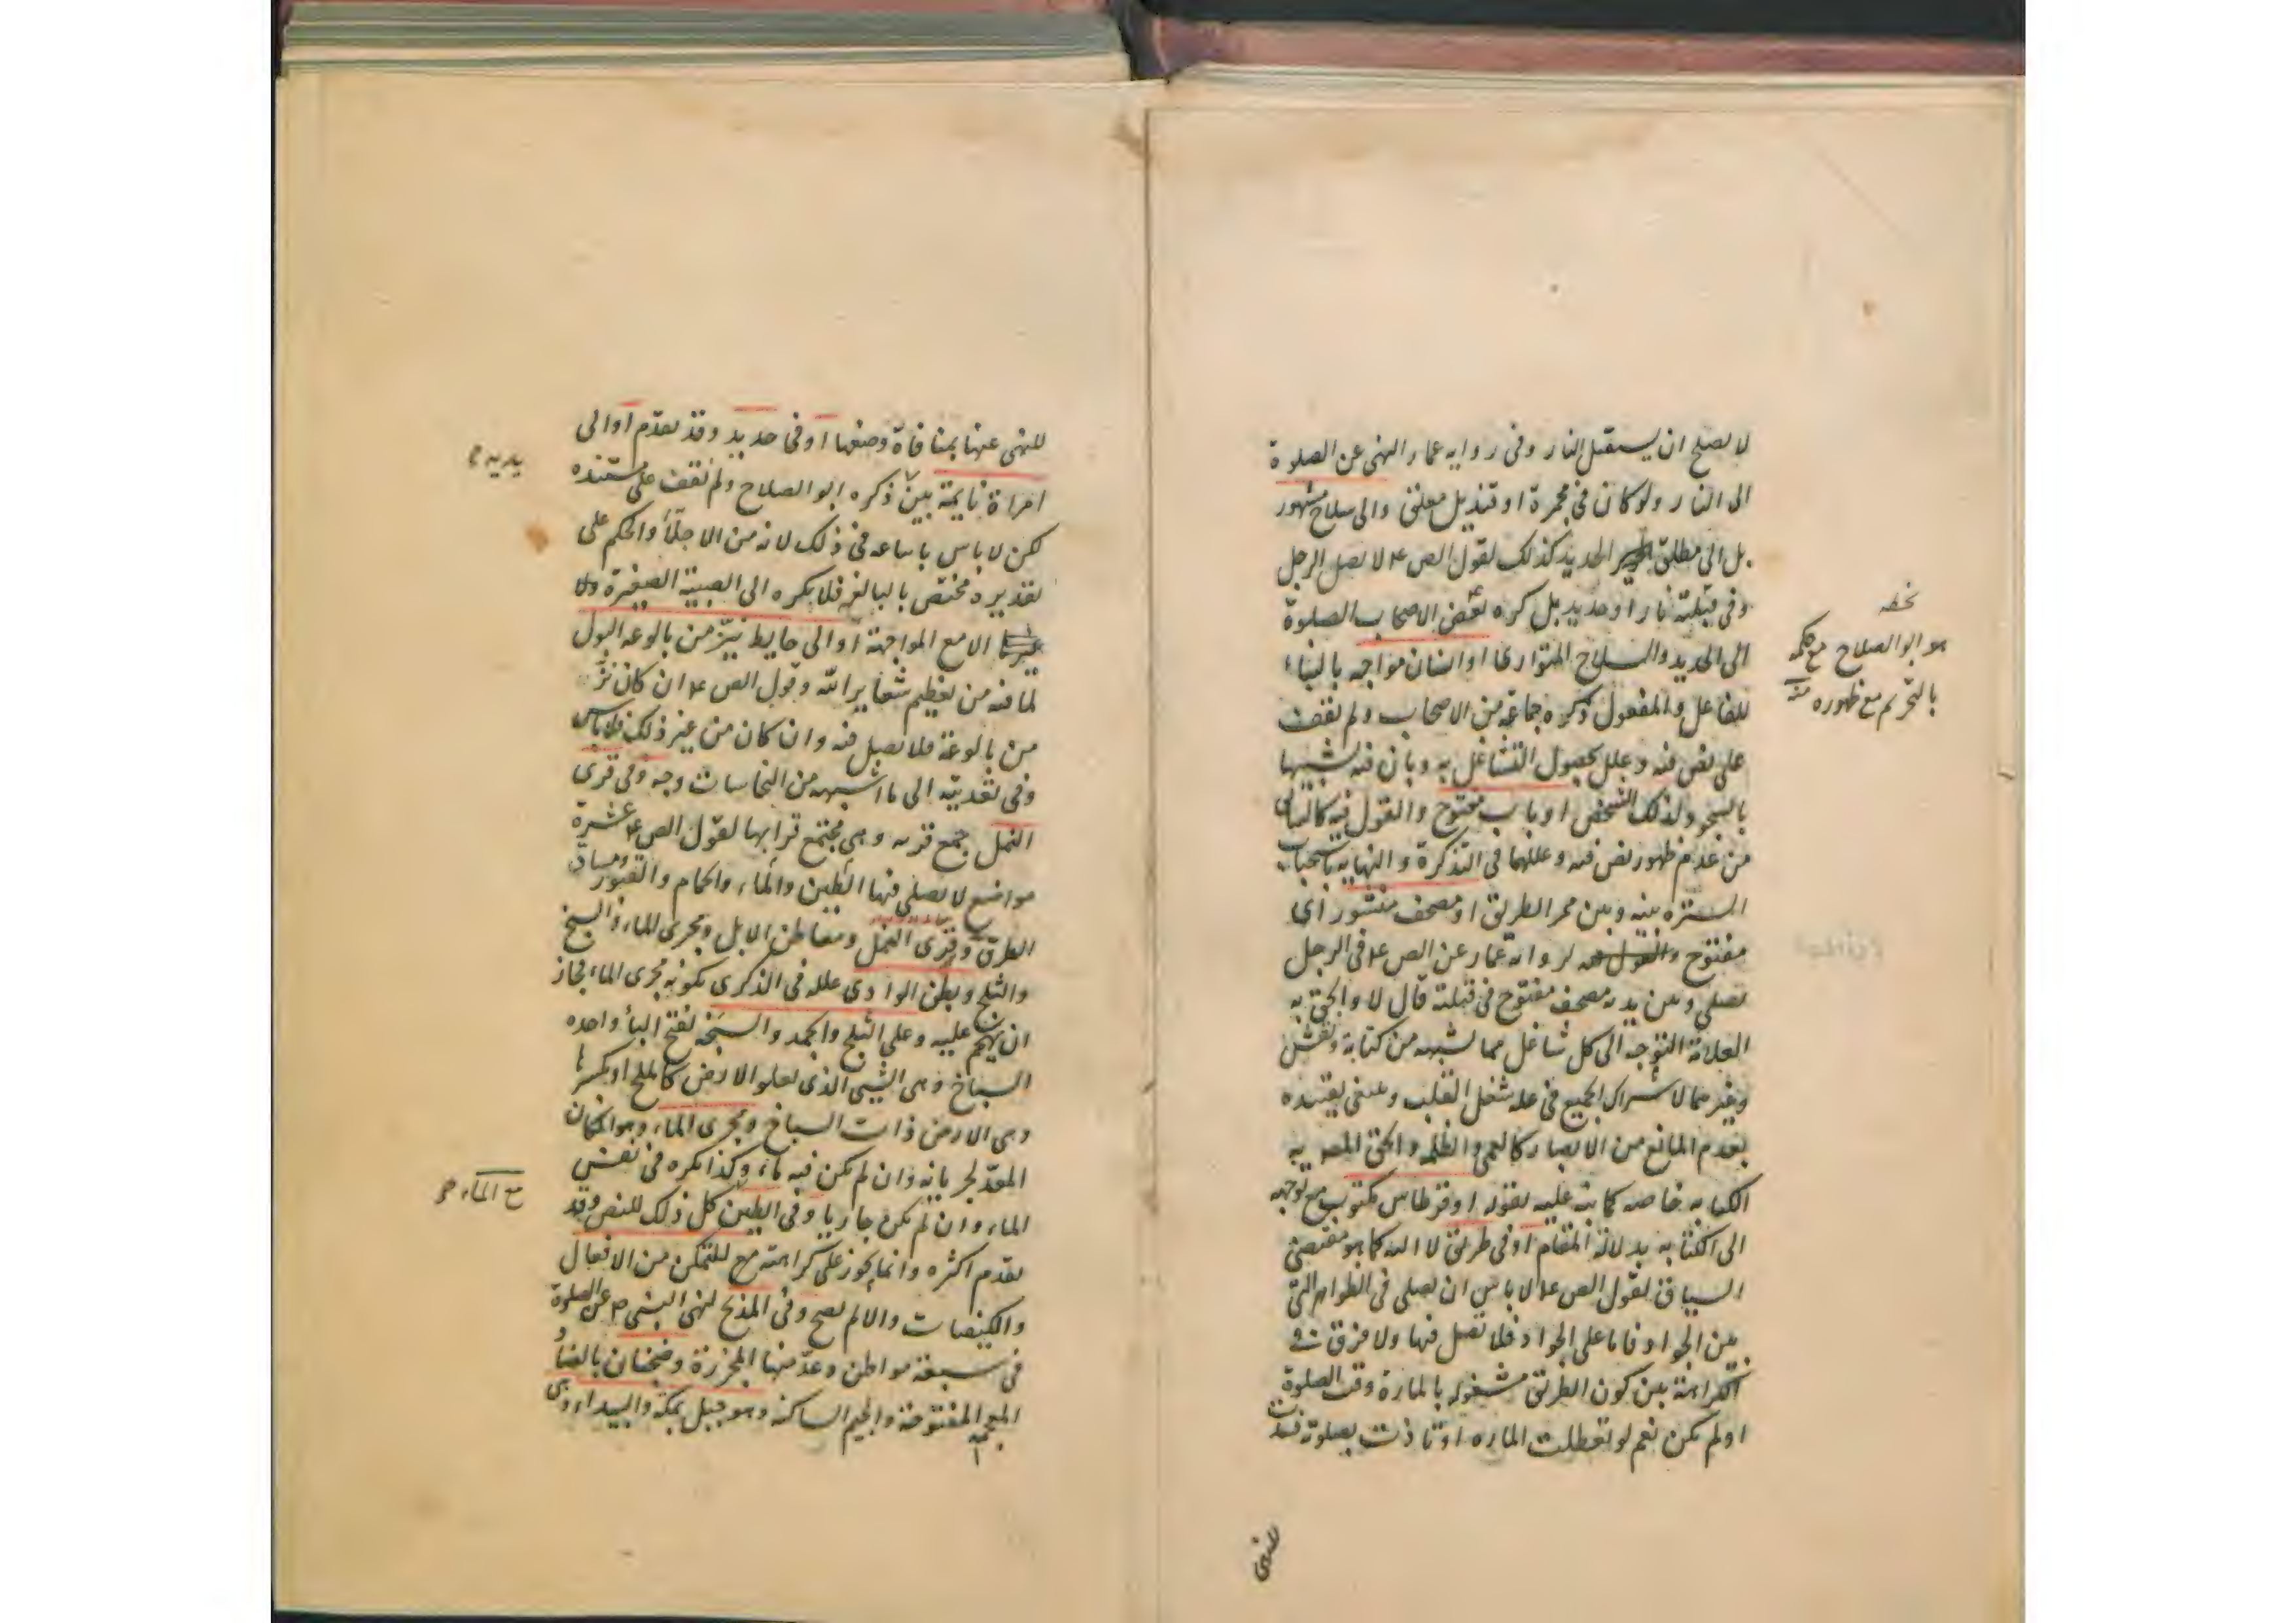 لا يصلح ان يستقبل النار وفى رواية عمار النهى عن الصلوة
الى النار ولو كان فى مجمرة او قنديل معلق والى سلاح مشهور
بل الى مطلق الحديد كذلك لقول الص ع لا يصل الرجل
وفى قبلته نار او حديد بل كره بعض الاصحاب الصلوة
الى الحديد والسلاح المتوارى او انسان مواجه بالبناء
للفاعل والمفعول ذكره جماعة من الاصحاب ولم نقف
على نص فيه وعلل بحصول التشاغل به وبان فيه تشبيها
بالسجود لذلك الشخص او باب مفتوح والقول فيه كالسابق
من عدم ظهور نص فيه وعللهما فى التذكرة والنهاية باستحباب
السترة بينه وبين ممر الطريق او مصحف منشور اى
مفتوح لرواية عمار عن الص ع فى الرجل
يصلى وبين يديه مصحف مفتوح فى قبلته قال لا والحق به
العلامة التوجه الى كل شاغل مما يشبهه من كتابة ونقش
وغيرهما لاشتراك الجميع فى علة شغل القلب وينبغى تقييده
بعدم المانع من الابصار كالعمى والظلمة والحق المص به
الكتابة خاصة كما نبه عليه بقوله او قرطاس مكتوب مع توجهه
الى الكتابة بدلالة المقام او فى طريق لا اليه كما هو مقتضى
السياق لقول الص ع لا باس ان يصلى فى الظواهر التى
بين الجواد فاما على الجواد فلا تصل فيها ولا فرق فى
الكراهة بين كون الطريق مشغولة بالمارة وقت الصلوة
او لم يكن نعم لو تعطلت المارة او تاذت بصلوته فسدت
هو ابو الصلاح مع حكمه
بالتحريم مع ظهوره منه
للنهى
للنهى عنها بمنافاة وضعها او فى حديد وقد تقدم او الى
امراة نايمة بين ذكره ابو الصلاح ولم نقف على مستنده
لكن لا باس باتباعه فى ذلك لانه من الاجلاء والحكم على
تقديره مختص بالبالغة فلا يكره الى الصبية الصغيرة ولا
الا مع المواجهة او الى حايط ينز من بالوعة البول
لما فيه من تعظيم شعاير الله وقول الص ع ان كان نز
من بالوعة فلا تصل فيه وان كان من غير ذلك فلا باس
وفى تعديته الى ما اشبهه من النجاسات وجه وفى قرى
النمل جمع قرية وهى مجتمع ترابها لقول الص ع عشرة
مواضع لا يصلى فيها الطين والماء والحمام والقبور ومسان
الطرق وقرى النمل ومعاطن الابل ومجرى الماء والسبخ
والثلج وبطن الوادى علله فى الذكرى بكونه مجرى الماء فجاز
ان يهجم عليه وعلى الثلج والجمد والسبخة بفتح الباء واحدة
السباخ وهى الشىء الذى يعلو الارض كالملح او بكسرها
وهى الارض ذات السباخ ومجرى الماء وهو المكان
المعد لجريانه وان لم يكن فيه ماء وكذا يكره فى نفس
الماء وان لم يكن جاريا وفى الطين كل ذلك للنص وقد
تقدم اكثره وانما يجوز على كراهته مع التمكن من الافعال
والكيفيات والا لم يصح وفى المذبح لنهى النبى ص عن الصلوة
فى سبعة مواطن وعد منها المجزرة وضجنان بالضاد
المعجمة المفتوحة والجيم الساكنة وهو جبل بمكة والبيداء وهى
يديه